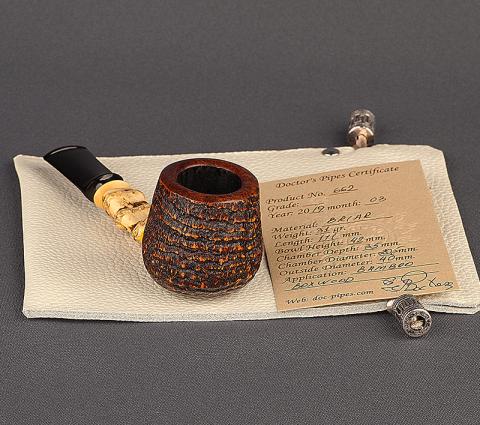 Doctor's Pipes Certificate
Product No. 662
Grade:
Year: 2019 month: 03
Material: BRIAR
Weight: gr.
Length: mm.
Bowl Height: 42 mm.
Chamber Depth: 35 mm.
Chamber Diameter: mm.
Outside Diameter: 40 mm.
Application: BAMBOO
BOXWOOD
Web: doc-pipes.com